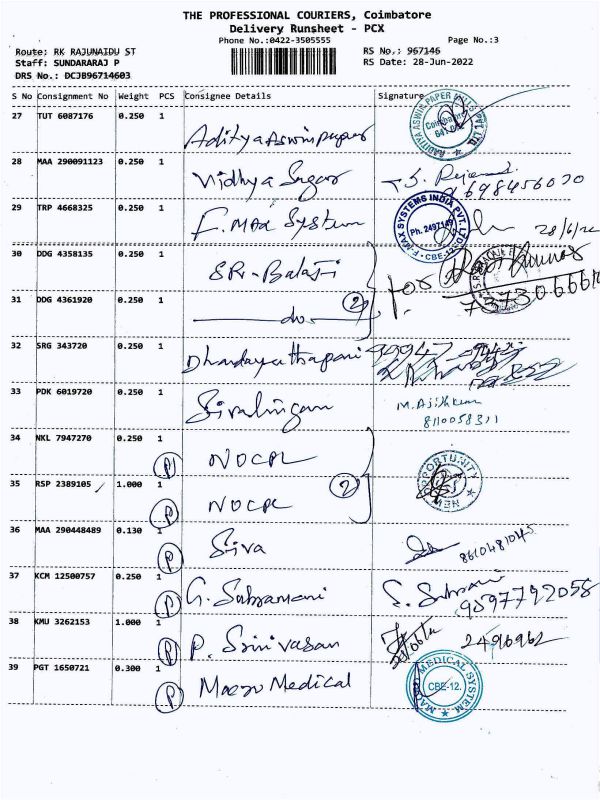 THE PROFESSIONAL COURIERS, Coimbatore
Delivery Runsheet - PCX
Phone No.:0422-3505555
Page No.:3
Route: RK RAJUNAIDU ST
RS No.: 967146
Staff: SUNDARARAJ P
RS Date: 28-Jun-2022
DRS No.: DCJB96714603
S No Consignment No Weight PCS Consignee Details Signature
27 TUT 6087176 0.250 1
Adityaaswinpaper
Coimbatore
28 MAA 290091123 0.250 1
Vidhya Sagar
29 TRP 4668325 0.250 1
F. Max System
F. MAX SYSTEMS INDIA PVT. LTD.
Ph. 2497149
CBE-12
28/6/22
30 DDG 4358135 0.250 1
SRi-Balaji
for
31 DDG 4361920 0.250 1
do
2
32 SRG 343720 0.250 1
Dhandayuthapani
33 PDK 6019720 0.250 1
Sivalingam
M. Ajithkum
8110058311
34 NKL 7947270 0.250 1
P
NOCPL
35 RSP 2389105 1.000 1
P
NOCPL
2
36 MAA 290448489 0.130 1
P
Siva
8610481045
37 KCM 12500757 0.250 1
P
G. Subramani
9597792058
38 KMU 3262153 1.000 1
P
P. Srinivasan
2496962
39 PGT 1650721 0.300 1
P
Medical
MEDICAL SYSTEM
CBE-12.